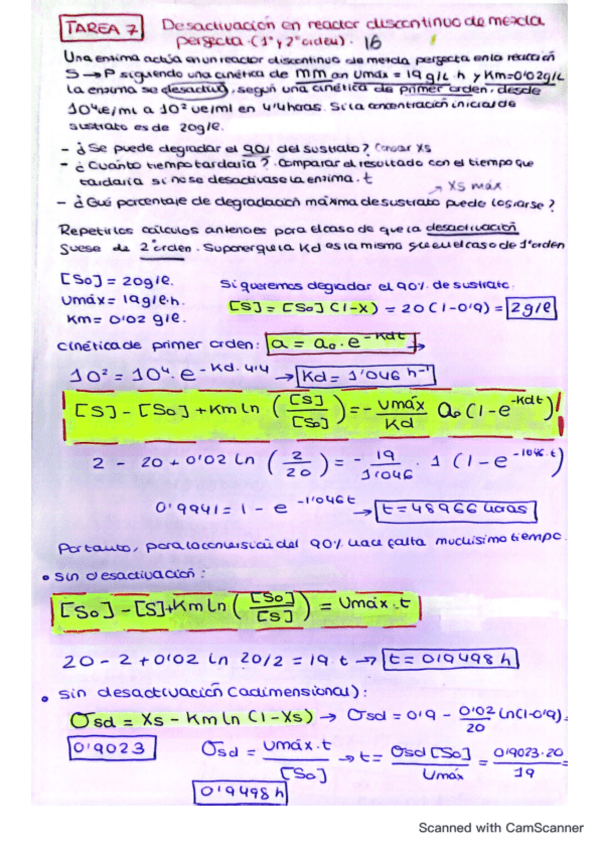 TAREA 7
Desactivación en reactor discontinuo de mezcla
perfecta. (1º y 2º orden). 16
Una enzima actúa en un reactor discontinuo de mezcla perfecta en la reacción
S → P siguiendo una cinética de MM con Vmáx = 19 g/L h y Km=0'02g/L
la enzima se desactiva, según una cinética de primer orden, desde
10⁴ue/ml a 10² ue/ml en 4'4 horas. Si la concentración inicial de
sustrato es de 20g/l.
- ¿Se puede degradar el 90% del sustrato? Xs
- ¿Cuánto tiempo tardaría? Comparar el resultado con el tiempo que
tardaría si no se desactivase la enzima. t
→ Xs máx
- ¿Qué porcentaje de degradación máxima de sustrato puede lograrse?
Repetir los cálculos anteriores para el caso de que la desactivación
fuese de 2º orden. Suponer que la Kd es la misma que en el caso de 1º orden
[So] = 20g/l.
Si queremos degradar el 90% de sustrato:
Vmáx = 19g/l·h.
[S] = [So] (1-X) = 20 (1-0'9) = 2g/l
Km = 0'02 g/l.
Cinética de primer orden: a = a₀ · e^-Kdt →
10² = 10⁴ · e^-Kd·4'4 → Kd = 1'046 h⁻¹
[S] - [So] + Km ln ([S]/[So]) = - Vmáx/Kd a₀ (1-e^-Kdt)
2 - 20 + 0'02 ln (2/20) = - 19/1'046 · 1 (1-e^-1'046·t)
0'9941 = 1 - e^-1'046t → t = 4'8966 horas
Por tanto, para la conversión del 90% hace falta muchísimo tiempo.
• Sin desactivación:
[So] - [S] + Km ln ([So]/[S]) = Vmáx·t
20 - 2 + 0'02 ln 20/2 = 19·t → t = 0'9498 h
• Sin desactivación (adimensional):
σsd = Xs - Km ln (1-Xs) → σsd = 0'9 - 0'02/20 ln(1-0'9) =
0'9023
σsd = Vmáx·t/[So] → t = σsd [So]/Vmáx = 0'9023·20/19 =
0'9498 h
Scanned with CamScanner